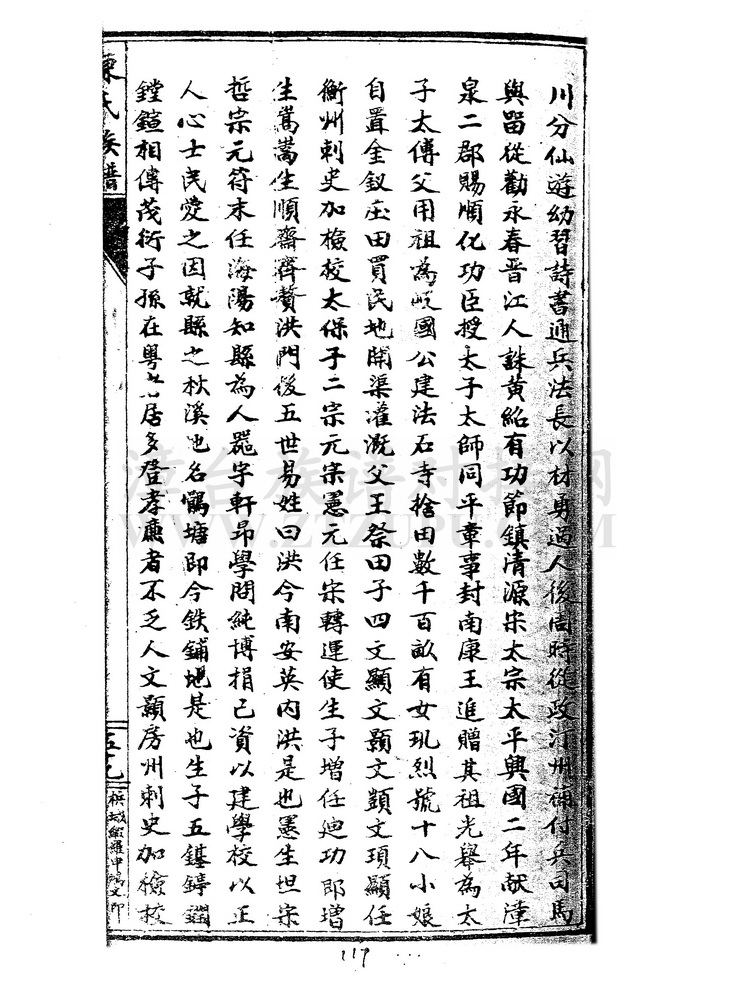 川分仙遊幼習詩書通兵法長以材勇過人後周時從政汀州補付兵司馬
與留從勸永春晋江人誅黃紹有功節鎮清源宋太宗太平興國二年献漳
泉二郡賜順化功臣授太子太師同平章事封南康王進贈其祖光舉為太
子太傅父用祖為岐國公建法石寺捨田數千百畝有女玑烈號十八小娘
自置金釵庄田買民地開渠灌溉父王祭田子四文顯文顥文顗文頊顯任
衡州刺史加檢校太保子二宗元宗憲元任宋轉運使生子增任廸功郎增
生嵩嵩生順齋齊贅洪門後五世易姓曰洪今南安英内洪是也憲生坦宗
哲宗元符末任海陽知縣為人器宇軒昂學問純博捐己資以建學校以正
人心士民愛之因就縣之秋溪也名鸝塘即今鉄鋪地是也生子五鍖錞鐗
鏜鍹相傳茂衍子孫在粤居多登孝廉者不乏人文顥房州刺史加檢校
陳氏族譜
五十九
117
漳台族谱对接网
WWW.ZTZUPU.COM